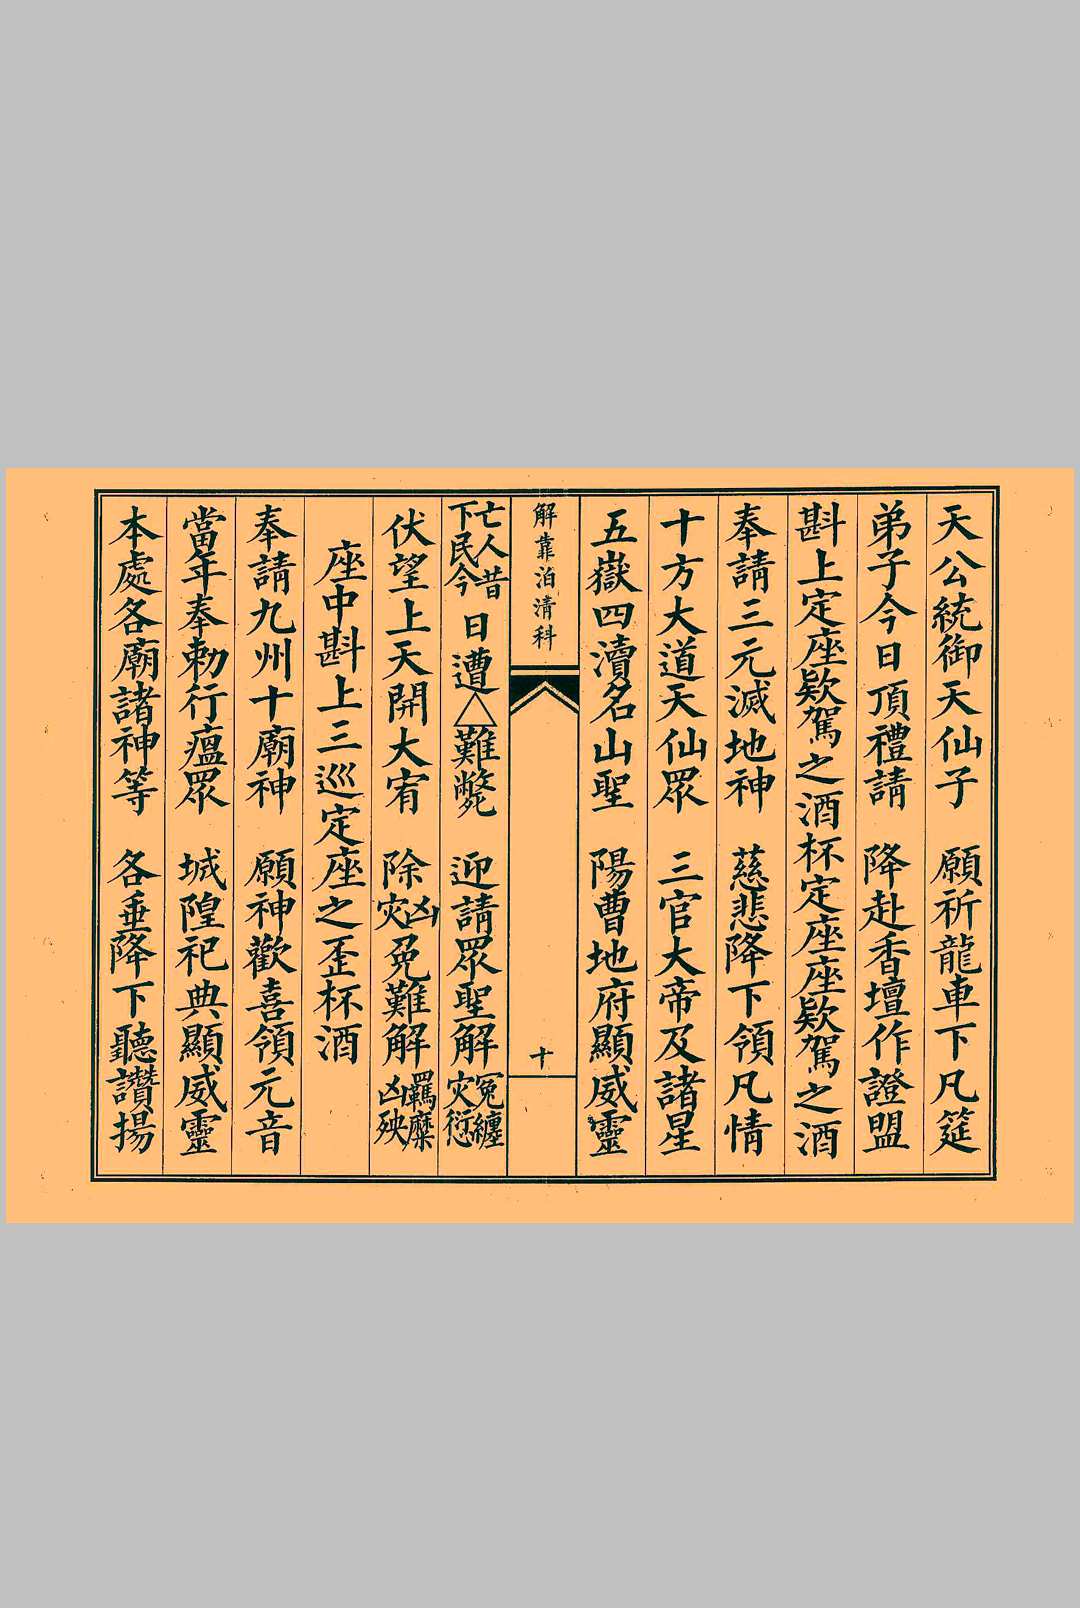 天公統御天仙子　願祈龍車下凡筵
弟子今日頂禮請　降赴香壇作證盟
斟上定座欵駕之酒杯定座座欵駕之酒
奉請三元滅地神　慈悲降下領凡情
十方大道天仙眾　三官大帝及諸星
五嶽四瀆名山聖　陽曹地府顯威靈
解靠泊清科
十
亡人昔
下民今
日遭△難斃　迎請眾聖解
冤纏
灾愆
伏望上天開大宥　除
凶
灾
免難解
羈縻
凶殃
座中斟上三巡定座之歪杯酒
奉請九州十廟神　願神歡喜領元音
當年奉勅行瘟眾　城隍祀典顯威靈
本處各廟諸神等　各垂降下聽讚揚